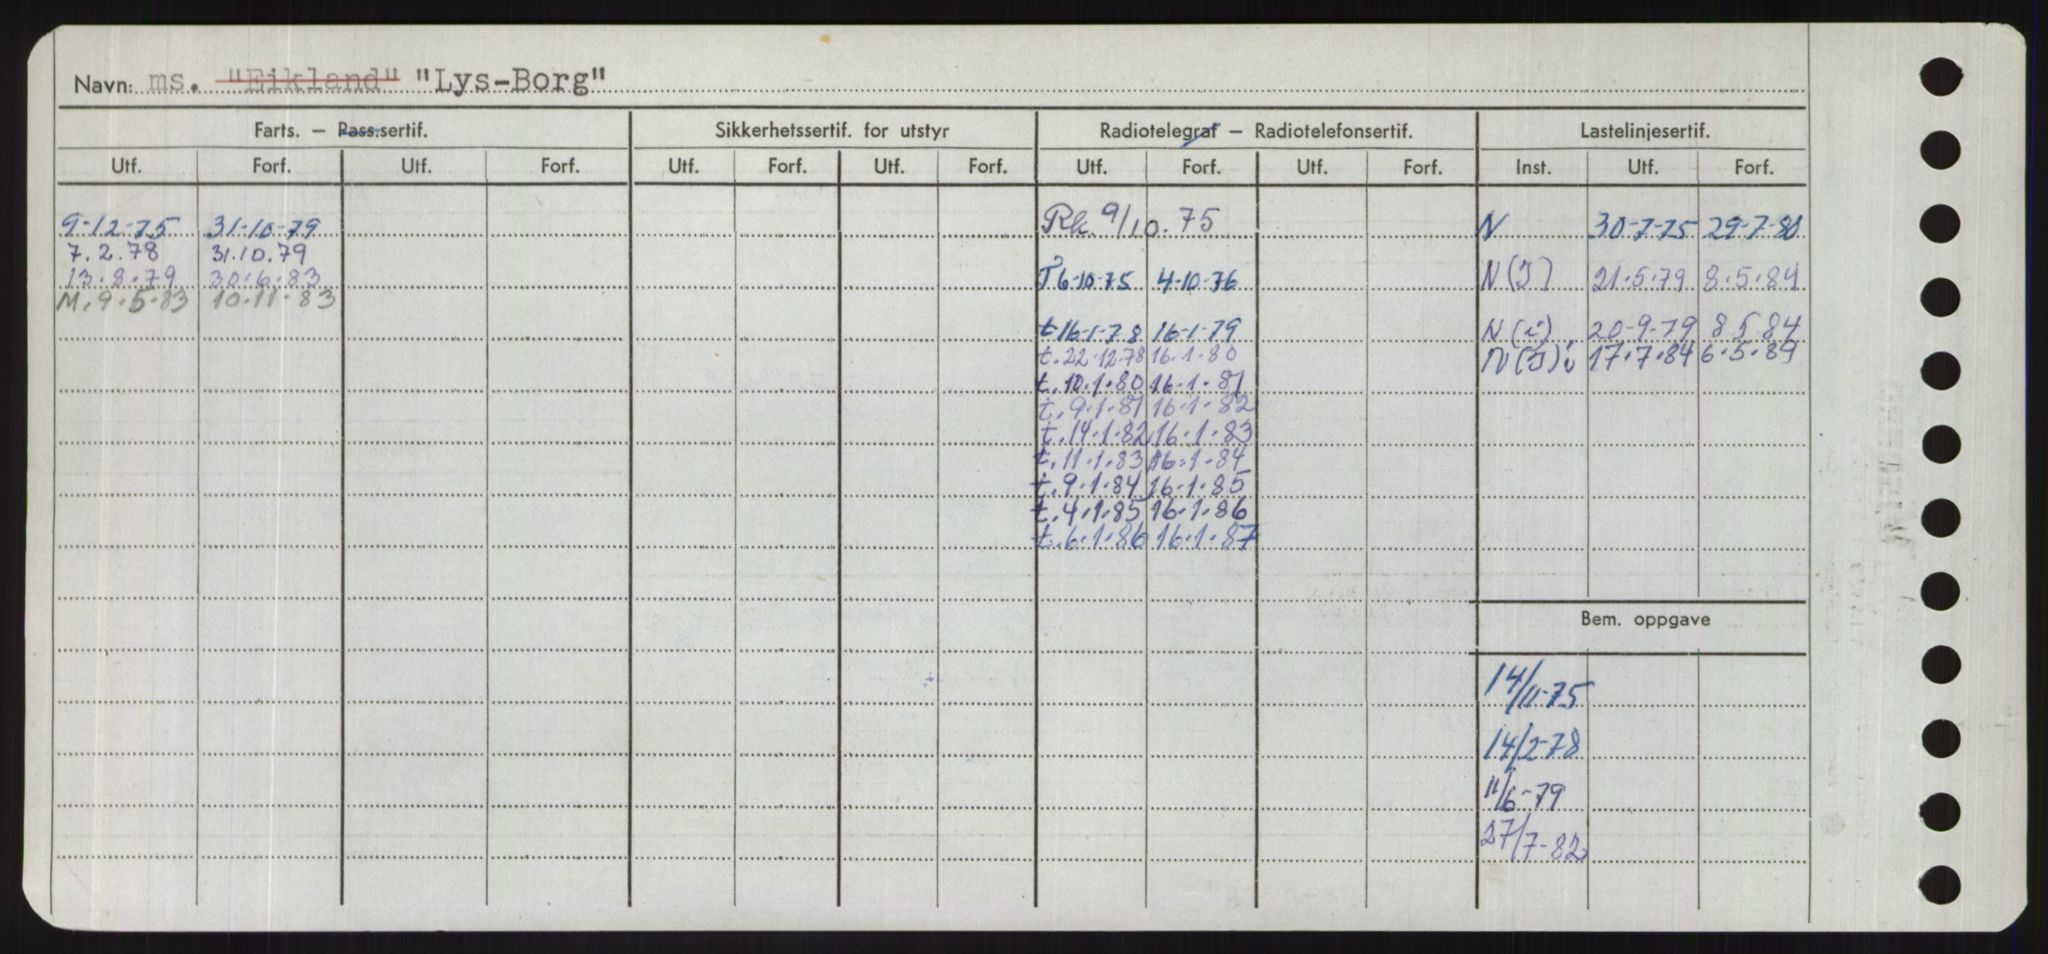 Navn: ms. "Eikland" "Lys-Borg"
Farts. – Pass.sertif. Sikkerhetssertif. for utstyr Radiotelegraf – Radiotelefonsertif. Lastelinjesertif.
Utf. Forf. Utf. Forf. Utf. Forf. Utf. Forf. Utf. Forf. Utf. Forf. Inst. Utf. Forf.
9-12-75 31-10-79 Rk. 9/10.75 N 30-7-75 29-7-80
7.2.78 31.10.79
13.8.79 30.6.83 T 6-10-75 4-10-76 N(I) 21.5.79 8.5.84
M.9.5.83 10.11.83
t 16-1-78 16-1-79 N(i). 20-9-79 8.5.84
t.22.12.78 16.1.80 N(I). 17.7.84 6.5.89
t.10.1.80 16.1.81
t.9.1.81 16.1.82
t.14.1.82 16.1.83
t.11.1.83 16.1.84
t.9.1.84 16.1.85
t.4.1.85 16.1.86
t.6.1.86 16.1.87
Bem. oppgave
14/11-75
14/2-78
11/6-79
27/7-82